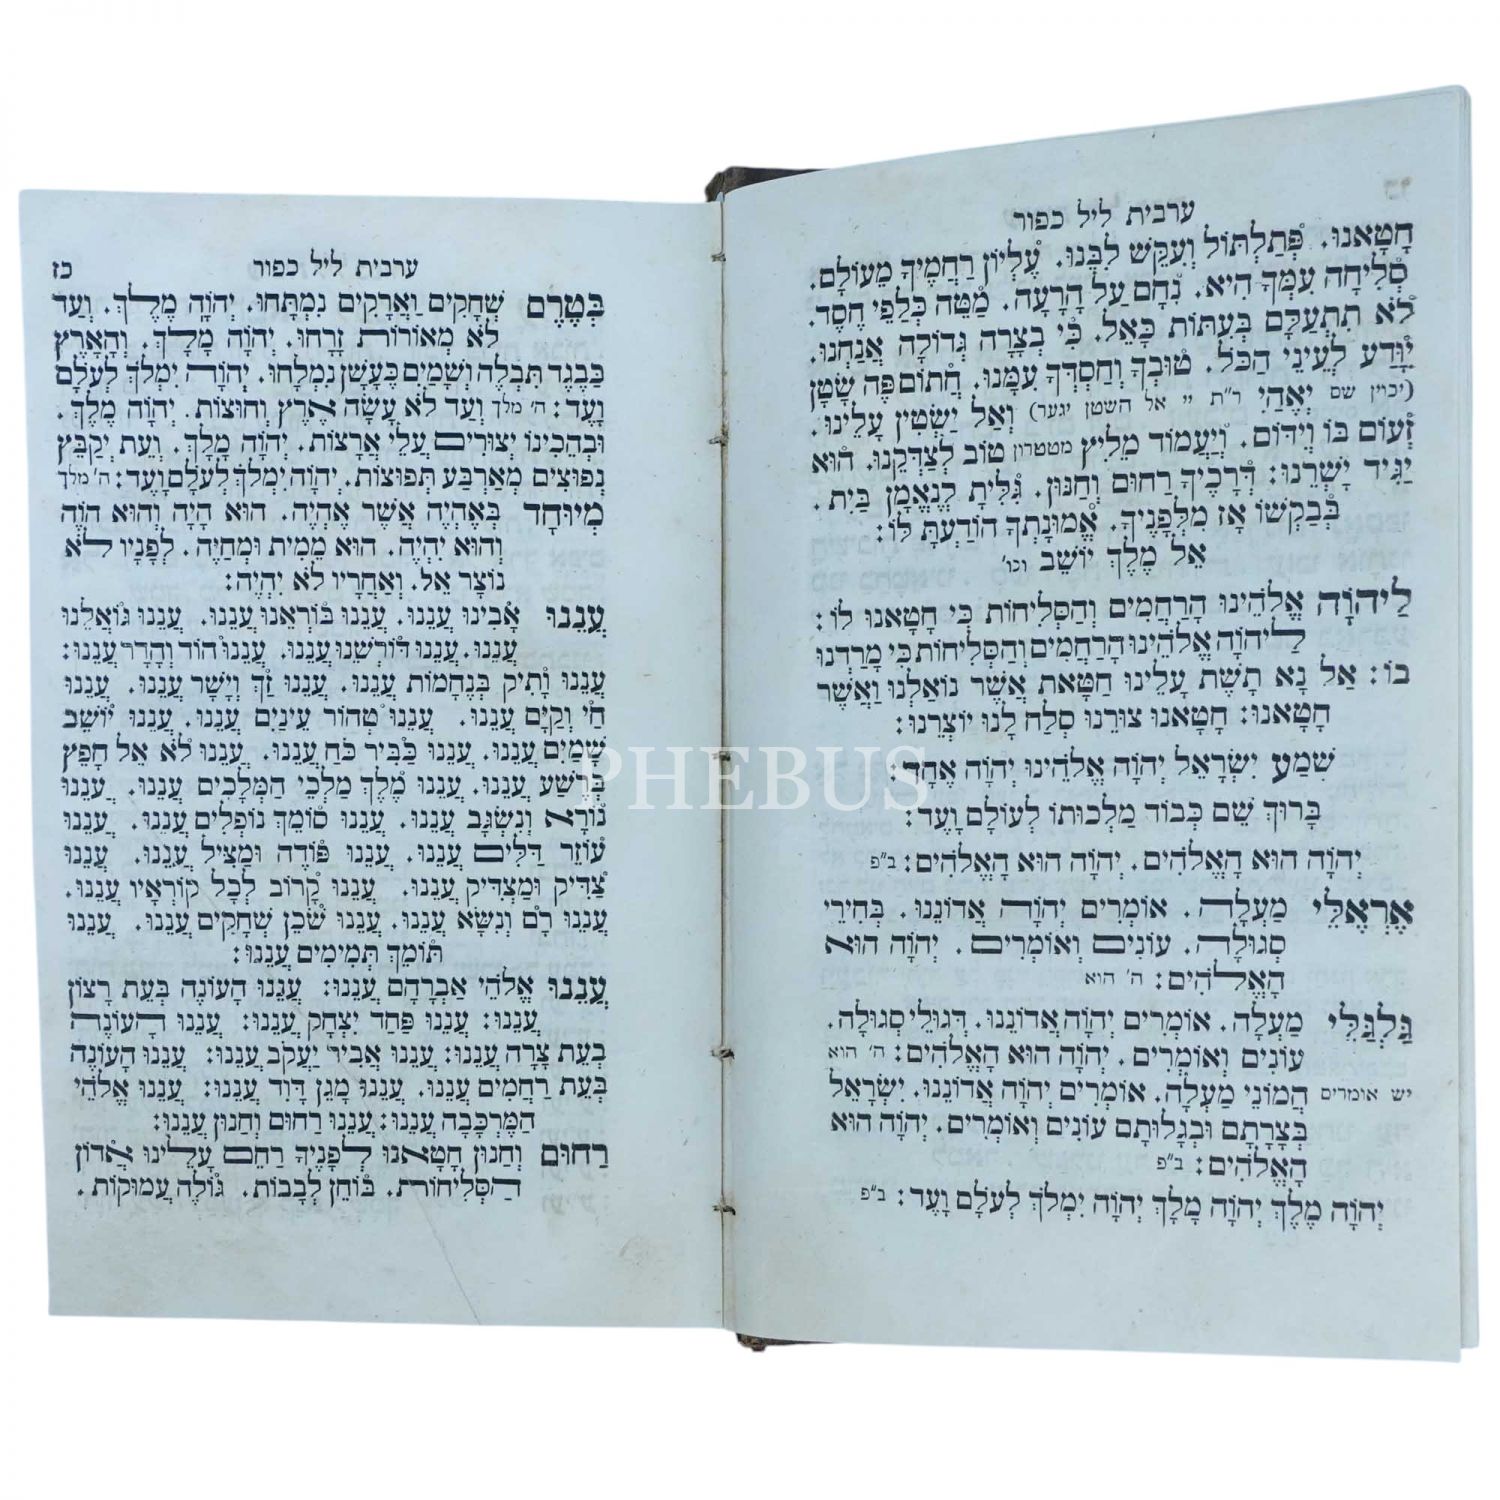 ערבית ליל כפור
חָטָאנוּ. פְּתַלְתּוֹל וְעִקֵּשׁ לִבֵּנוּ. עֶלְיוֹן רַחֲמֶיךָ מֵעוֹלָם.
סְלִיחָה עִמְּךָ הִיא. נִחָם עַל הָרָעָה. מַטֵּה כְּלַפֵּי חֶסֶד.
לֹא תִתְעַלָּם בְּעִתּוֹת כָּאֵל. כִּי בְצָרָה גְדוֹלָה אֲנַחְנוּ.
יִוָּדַע לְעֵינֵי הַכֹּל. טוּבְךָ וְחַסְדְּךָ עִמָּנוּ. חֲתוֹם פֶּה שָׂטָן
(יכוין שם יְאֲהִי ר"ת יי אל השטן יגער) וְאַל יַשְׂטִין עָלֵינוּ.
זְעוֹם בּוֹ וְיִדּוֹם. וְיַעֲמוֹד מֵלִיץ מטטרון טוֹב לְצַדְּקֵנוּ. הוּא
יַגִּיד יָשְׁרֵנוּ: דְּרָכֶיךָ רַחוּם וְחַנּוּן. גִּלִּיתָ לְנֶאֱמַן בַּיִת.
בְּבַקְשׁוֹ אָז מִלְּפָנֶיךָ. אֱמוּנָתְךָ הוֹדַעְתָּ לּוֹ:
אֵל מֶלֶךְ יוֹשֵׁב וכו'
לַיהוָה אֱלֹהֵינוּ הָרַחֲמִים וְהַסְּלִיחוֹת כִּי חָטָאנוּ לוֹ:
לַיהוָה אֱלֹהֵינוּ הָרַחֲמִים וְהַסְּלִיחוֹת כִּי מָרַדְנוּ
בוֹ: אַל נָא תָשֵׁת עָלֵינוּ חַטָּאת אֲשֶׁר נוֹאַלְנוּ וַאֲשֶׁר
חָטָאנוּ: חָטָאנוּ צוּרֵנוּ סְלַח לָנוּ יוֹצְרֵנוּ:
שְׁמַע יִשְׂרָאֵל יְהוָה אֱלֹהֵינוּ יְהוָה אֶחָד:
בָּרוּךְ שֵׁם כְּבוֹד מַלְכוּתוֹ לְעוֹלָם וָעֶד:
יְהוָה הוּא הָאֱלֹהִים. יְהוָה הוּא הָאֱלֹהִים: ב"פ
אֶרְאֶלֵּי מַעְלָה. אוֹמְרִים יְהוָה אֲדוֹנֵנוּ. בְּחִירֵי
סְגוּלָּה. עוֹנִים וְאוֹמְרִים. יְהוָה הוּא
הָאֱלֹהִים: ה' הוא
גַּלְגַּלֵּי מַעְלָה. אוֹמְרִים יְהוָה אֲדוֹנֵנוּ. דְּגוּלֵי סְגוּלָה.
עוֹנִים וְאוֹמְרִים. יְהוָה הוּא הָאֱלֹהִים: ה' הוא
יש אומרים הֲמוֹנֵי מַעְלָה. אוֹמְרִים יְהוָה אֲדוֹנֵנוּ. יִשְׂרָאֵל
בְּצָרָתָם וּבְגָלוּתָם עוֹנִים וְאוֹמְרִים. יְהוָה הוּא
הָאֱלֹהִים: ב"פ
יְהוָה מֶלֶךְ יְהוָה מָלָךְ יְהוָה יִמְלֹךְ לְעֹלָם וָעֶד: ב"פ
ערבית ליל כפור כז
בְּטֶרֶם שְׁחָקִים וַאֲרָקִים נִמְתָּחוּ. יְהוָה מֶלֶךְ. וְעַד
לֹא מְאוֹרוֹת זָרָחוּ. יְהוָה מָלָךְ. וְהָאָרֶץ
כַּבֶּגֶד תִּבְלֶה וְשָׁמַיִם כֶּעָשָׁן נִמְלָחוּ. יְהוָה יִמְלֹךְ לְעֹלָם
וָעֶד: ה' מלך וְעַד לֹא עָשָׂה אֶרֶץ וְחוּצוֹת. יְהוָה מֶלֶךְ.
וּבַהֲכִינוֹ יְצוּרִים עֲלֵי אֲרָצוֹת. יְהוָה מָלָךְ. וְעֵת יְקַבֵּץ
נְפוּצִים מֵאַרְבַּע תְּפוּצוֹת. יְהוָה יִמְלֹךְ לְעֹלָם וָעֶד: ה' מלך
מְיוּחָד בְּאֶהְיֶה אֲשֶׁר אֶהְיֶה. הוּא הָיָה וְהוּא הוֹוֶה
וְהוּא יִהְיֶה. הוּא מֵמִית וּמְחַיֶּה. לְפָנָיו לֹא
נוֹצַר אֵל. וְאַחֲרָיו לֹא יִהְיֶה:
עֲנֵנוּ אָבִינוּ עֲנֵנוּ. עֲנֵנוּ בּוֹרְאֵנוּ עֲנֵנוּ. עֲנֵנוּ גּוֹאֲלֵנוּ
עֲנֵנוּ. עֲנֵנוּ דּוֹרְשֵׁנוּ עֲנֵנוּ. עֲנֵנוּ הוֹד וְהָדָר עֲנֵנוּ:
עֲנֵנוּ וָתִיק בְּנֶחָמוֹת עֲנֵנוּ. עֲנֵנוּ זַךְ וְיָשָׁר עֲנֵנוּ. עֲנֵנוּ
חַי וְקַיָּם עֲנֵנוּ. עֲנֵנוּ טְהוֹר עֵינַיִם עֲנֵנוּ. עֲנֵנוּ יוֹשֵׁב
שָׁמַיִם עֲנֵנוּ. עֲנֵנוּ כַּבִּיר כֹּחַ עֲנֵנוּ. עֲנֵנוּ לֹא אֵל חָפֵץ
בְּרֶשַׁע עֲנֵנוּ. עֲנֵנוּ מֶלֶךְ מַלְכֵי הַמְּלָכִים עֲנֵנוּ. עֲנֵנוּ
נוֹרָא וְנִשְׂגָּב עֲנֵנוּ. עֲנֵנוּ סוֹמֵךְ נוֹפְלִים עֲנֵנוּ. עֲנֵנוּ
עוֹזֵר דַּלִּים עֲנֵנוּ. עֲנֵנוּ פּוֹדֶה וּמַצִּיל עֲנֵנוּ. עֲנֵנוּ
צַדִּיק וּמַצְדִּיק עֲנֵנוּ. עֲנֵנוּ קָרוֹב לְכָל קוֹרְאָיו עֲנֵנוּ.
עֲנֵנוּ רָם וְנִשָּׂא עֲנֵנוּ. עֲנֵנוּ שֹׁכֵן שְׁחָקִים עֲנֵנוּ. עֲנֵנוּ
תּוֹמֵךְ תְּמִימִים עֲנֵנוּ:
עֲנֵנוּ אֱלֹהֵי אַבְרָהָם עֲנֵנוּ: עֲנֵנוּ הָעוֹנֶה בְּעֵת רָצוֹן
עֲנֵנוּ: עֲנֵנוּ פַּחַד יִצְחָק עֲנֵנוּ: עֲנֵנוּ הָעוֹנֶה
בְּעֵת צָרָה עֲנֵנוּ: עֲנֵנוּ אֲבִיר יַעֲקֹב עֲנֵנוּ: עֲנֵנוּ הָעוֹנֶה
בְּעֵת רַחֲמִים עֲנֵנוּ. עֲנֵנוּ מָגֵן דָּוִד עֲנֵנוּ: עֲנֵנוּ אֱלֹהֵי
הַמֶּרְכָּבָה עֲנֵנוּ: עֲנֵנוּ רַחוּם וְחַנּוּן עֲנֵנוּ:
רַחוּם וְחַנּוּן חָטָאנוּ לְפָנֶיךָ רַחֵם עָלֵינוּ אֲדוֹן
הַסְּלִיחוֹת. בּוֹחֵן לְבָבוֹת. גּוֹלֶה עֲמוּקוֹת.
PHEBUS